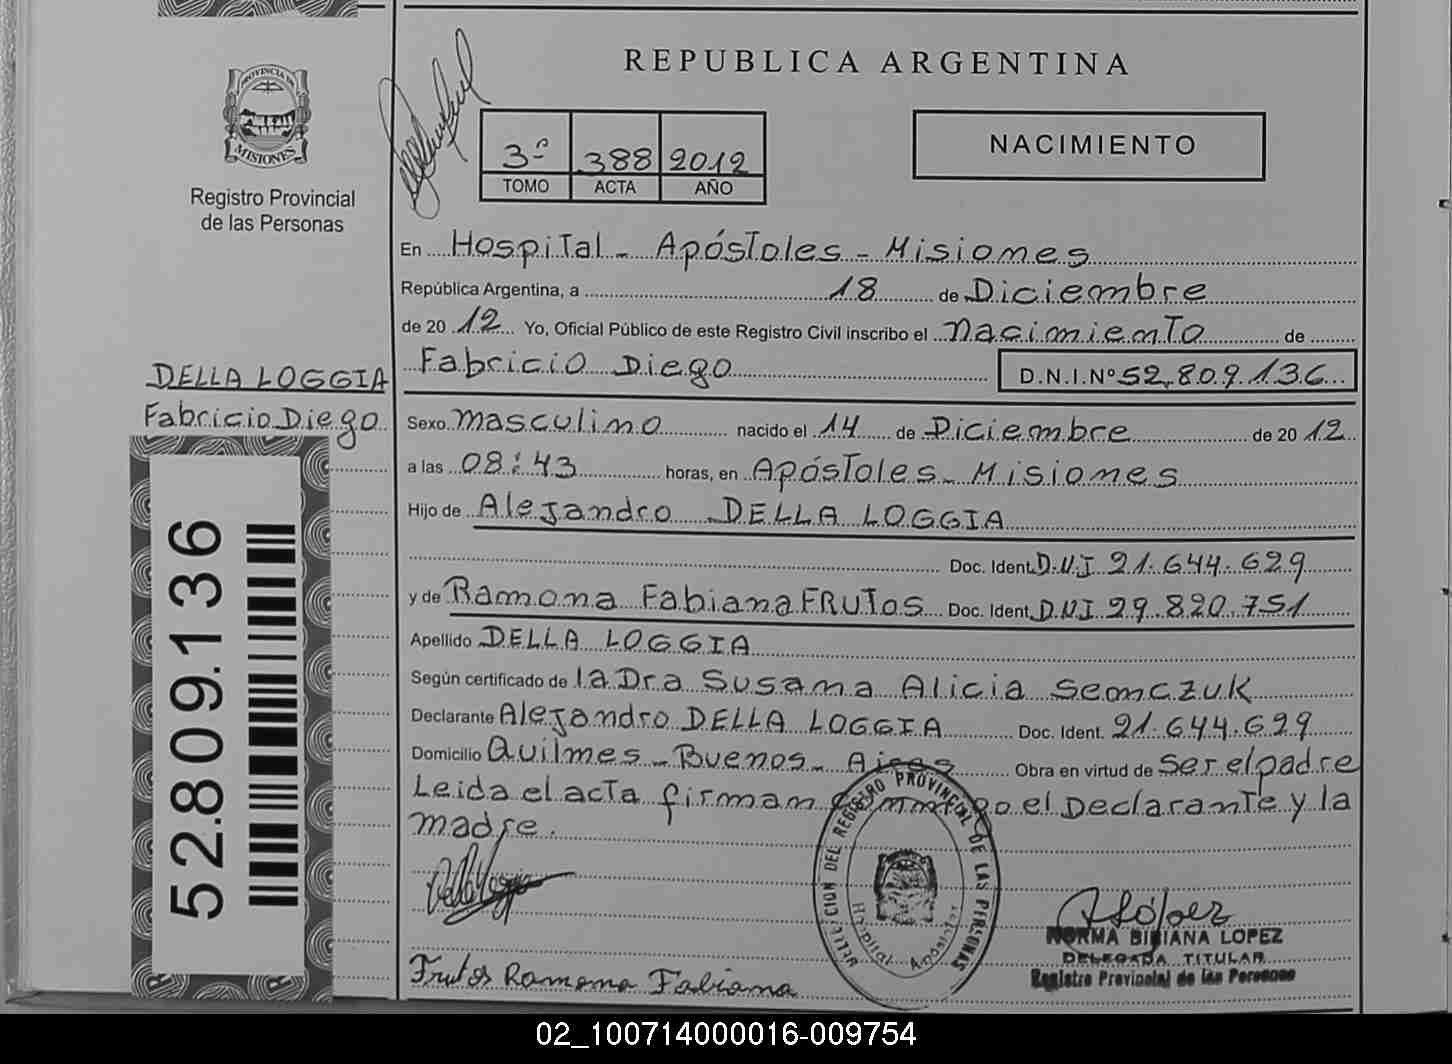 REPUBLICA ARGENTINA
PROVINCIA DE
MISIONES
Registro Provincial
de las Personas
3º 388 2012
TOMO ACTA AÑO
NACIMIENTO
En Hospital - Apóstoles - Misiones
República Argentina, a 18 de Diciembre
de 20 12 Yo, Oficial Público de este Registro Civil inscribo el nacimiento de
Fabricio Diego D.N.I.Nº 52.809.136
DELLA LOGGIA
Fabricio Diego
Sexo masculino nacido el 14 de Diciembre de 20 12
a las 08:43 horas, en Apóstoles - Misiones
Hijo de Alejandro DELLA LOGGIA
Doc. Ident. D.N.I 21.644.629
y de Ramona Fabiana FRUTOS Doc. Ident. D.N.I 29.820.751
Apellido DELLA LOGGIA
Según certificado de la Dra Susana Alicia Semczuk
Declarante Alejandro DELLA LOGGIA Doc. Ident. 21.644.629
Domicilio Quilmes - Buenos - Aires Obra en virtud de ser el padre
Leida el acta firman conmigo el Declarante y la
madre.
52.809.136
DEL REGISTRO PROVINCIAL DE LAS PERSONAS
Hospital Apóstoles
Frutos Ramona Fabiana
NORMA BIBIANA LOPEZ
DELEGADA TITULAR
Registro Provincial de las Personas
02_100714000016-009754